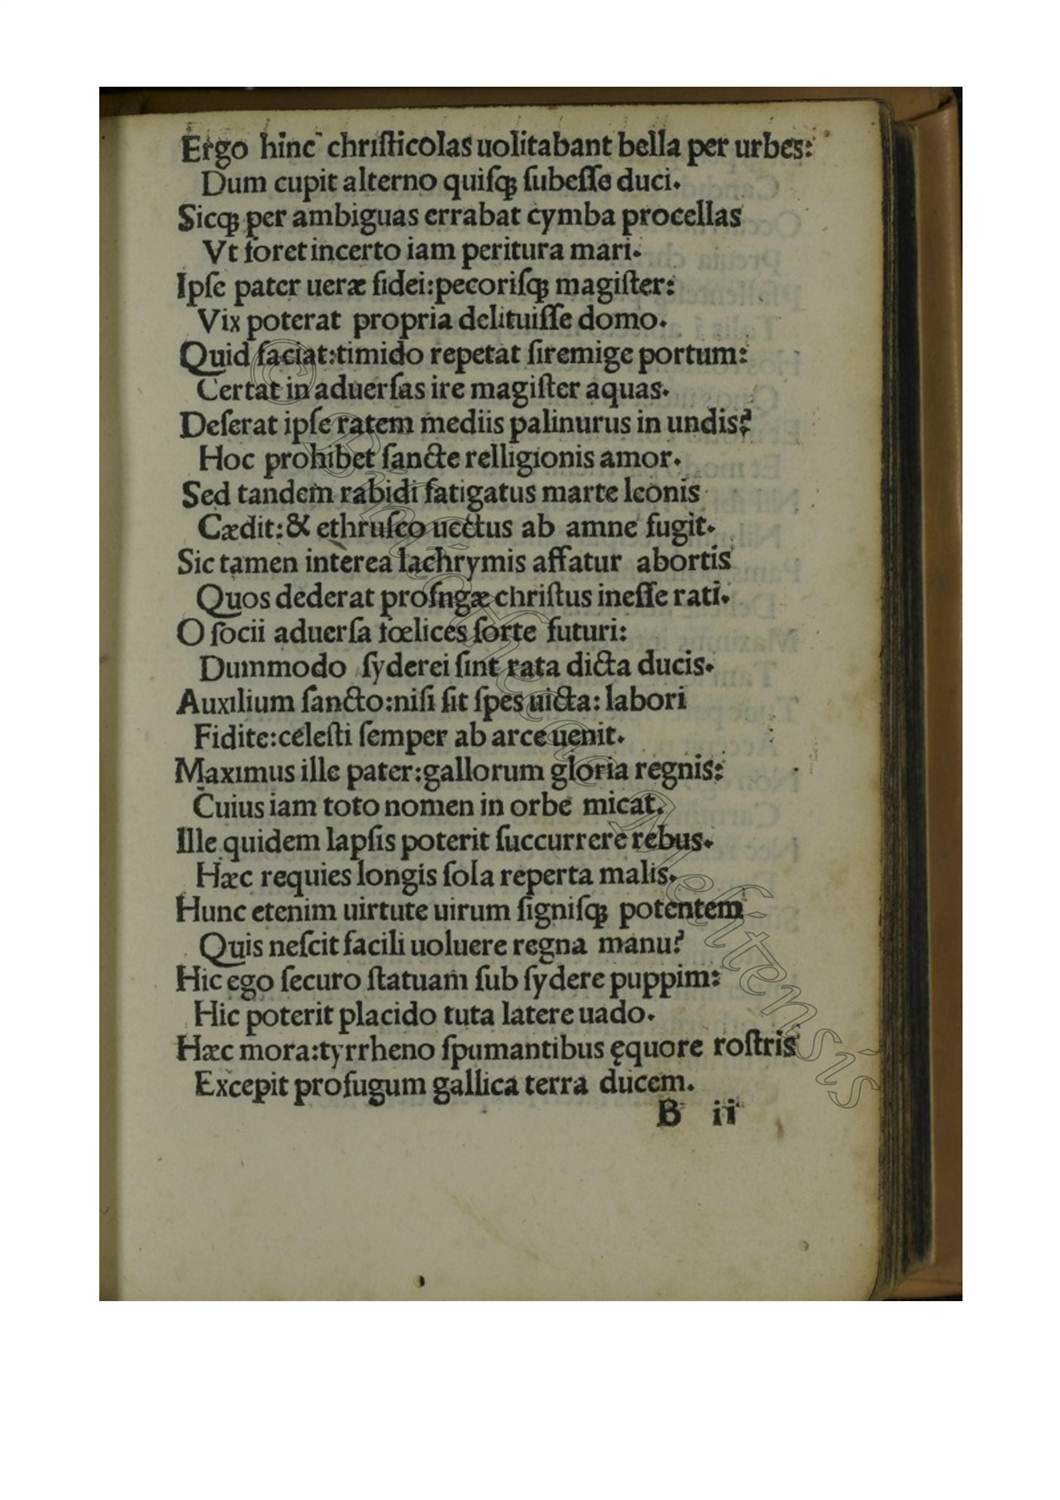 Ergo hinc chriſticolas uolitabant bella per urbes:
Dum cupit alterno quiſqꝫ ſubeſſe duci.
Sicqꝫ per ambiguas errabat cymba procellas
Vt foret incerto iam peritura mari.
Ipſe pater ueræ fidei:pecoriſqꝫ magiſter:
Vix poterat propria delituiſſe domo.
Quid faciat:timido repetat ſi remige portum:
Certat in aduerſas ire magiſter aquas.
Deſerat ipſe ratem mediis palinurus in undis?
Hoc prohibet ſancte relligionis amor.
Sed tandem rabidi fatigatus marte leonis
Cædit:& ethruſco uectus ab amne fugit.
Sic tamen interea lachrymis affatur abortis
Quos dederat profugæ chriſtus ineſſe rati.
O ſocii aduerſa fœlices ſorte futuri:
Dummodo ſyderei ſint rata dicta ducis.
Auxilium ſancto:niſi ſit ſpes uicta: labori
Fidite:celeſti ſemper ab arce uenit.
Maximus ille pater:gallorum gloria regnis:
Cuius iam toto nomen in orbe micat.
Ille quidem lapſis poterit ſuccurrere rebus.
Hæc requies longis ſola reperta malis.
Hunc etenim uirtute uirum ſigniſqꝫ potentem
Quis neſcit facili uoluere regna manu?
Hic ego ſecuro ſtatuam ſub ſydere puppim:
Hic poterit placido tuta latere uado.
Hæc mora:tyrrheno ſpumantibus ęquore roſtris
Excepit profugum gallica terra ducem.
B ii
© Bibliotheca Melitensis